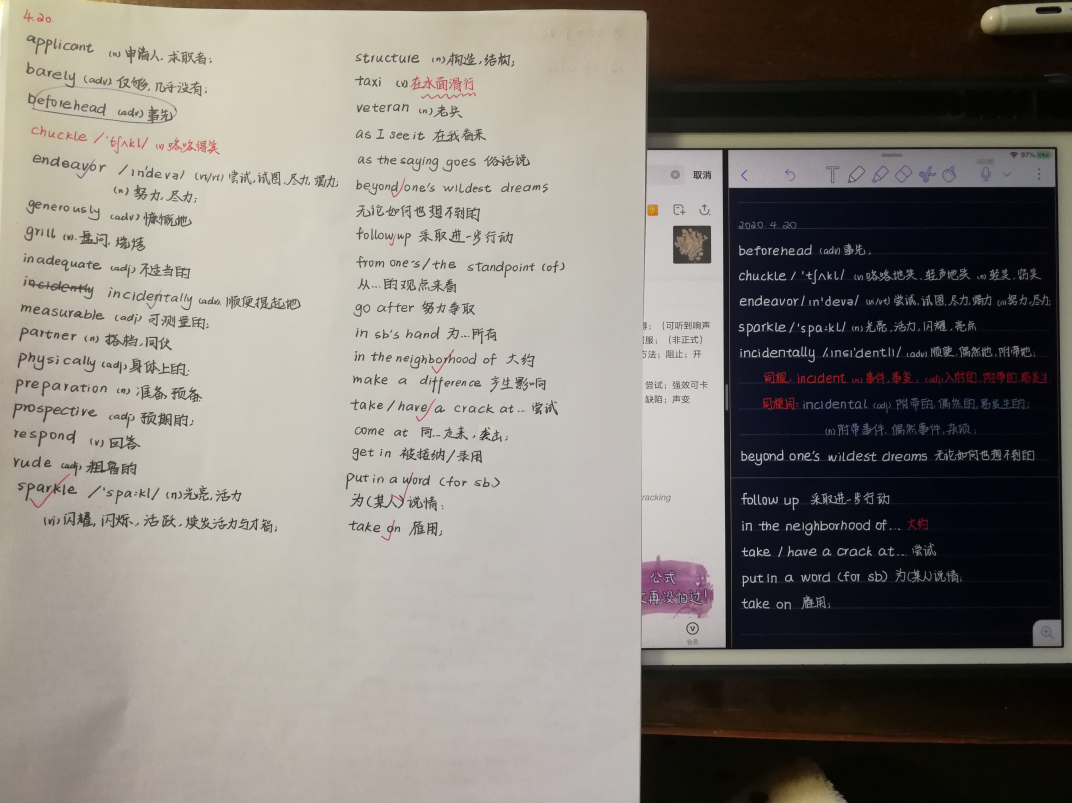 4.20.
applicant (n) 申请人, 求取者;
barely (adv) 仅够, 几乎没有;
beforehead (adv) 事先
chuckle /'tʃʌkl/ (v) 咯咯得笑
endeavor /ɪn'devə/ (vt/vi) 尝试, 试图, 尽力, 竭力;
(n) 努力, 尽力;
generously (adv) 慷慨地
grill (v). 盘问. 烧烤
inadequate (adj) 不适当的
incidently incidentally (adv). 顺便提起地
measurable (adj) 可测量的;
partner (n) 搭档, 同伙
physically (adj) 身体上的;
preparation (n) 准备, 预备
prospective (adj) 预期的;
respond (v) 回答
rude (adj) 粗鲁的
sparkle /'spa:kl/ (n) 光亮, 活力
(vi) 闪耀, 闪烁, 活跃, 焕发活力与才智;
structure (n) 构造, 结构;
taxi (v) 在水面滑行
veteran (n) 老兵
as I see it 在我看来
as the saying goes 俗话说
beyond one's wildest dreams
无论如何也想不到的
follow up 采取进一步行动
from one's/the standpoint (of)
从...的观点来看
go after 努力争取
in sb's hand 为...所有
in the neighborhood of 大约
make a difference 产生影响
take/have a crack at... 尝试
come at 向...走来, 袭击;
get in 被接纳/录用
put in a word (for sb.)
为(某人)说情;
take on 雇用;
取消
(可听到响声
(非正式)
方法；阻止；开
尝试；强效可卡
缺陷；声变
racking
公式
再没怕过!
会员
00:00
97%
2020. 4. 20
beforehead (adv) 事先;
chuckle / 'tʃʌkl/ (v) 咯咯地笑, 轻声地笑 (n) 轻笑, 窃笑
endeavor / ɪn'devə/ (n/vt) 尝试, 试图, 尽力, 竭力 (n) 努力, 尽力
sparkle /'spa:kl/ (n) 光亮, 活力, 闪耀, 亮点
incidentally /ˌɪnsɪ'dentlɪ/ (adv) 顺便, 偶然地, 附带地;
词根: incident (n) 事件, 事变; (adj) 入射的, 附带的, 易发生
同根词: incidental (adj) 附带的, 偶然的, 易发生的;
(n) 附带事件, 偶然事件, 杂项;
beyond one's wildest dreams 无论如何也想不到的
follow up 采取进一步行动
in the neighborhood of... 大约
take / have a crack at... 尝试
put in a word (for sb) 为(某人)说情;
take on 雇用;